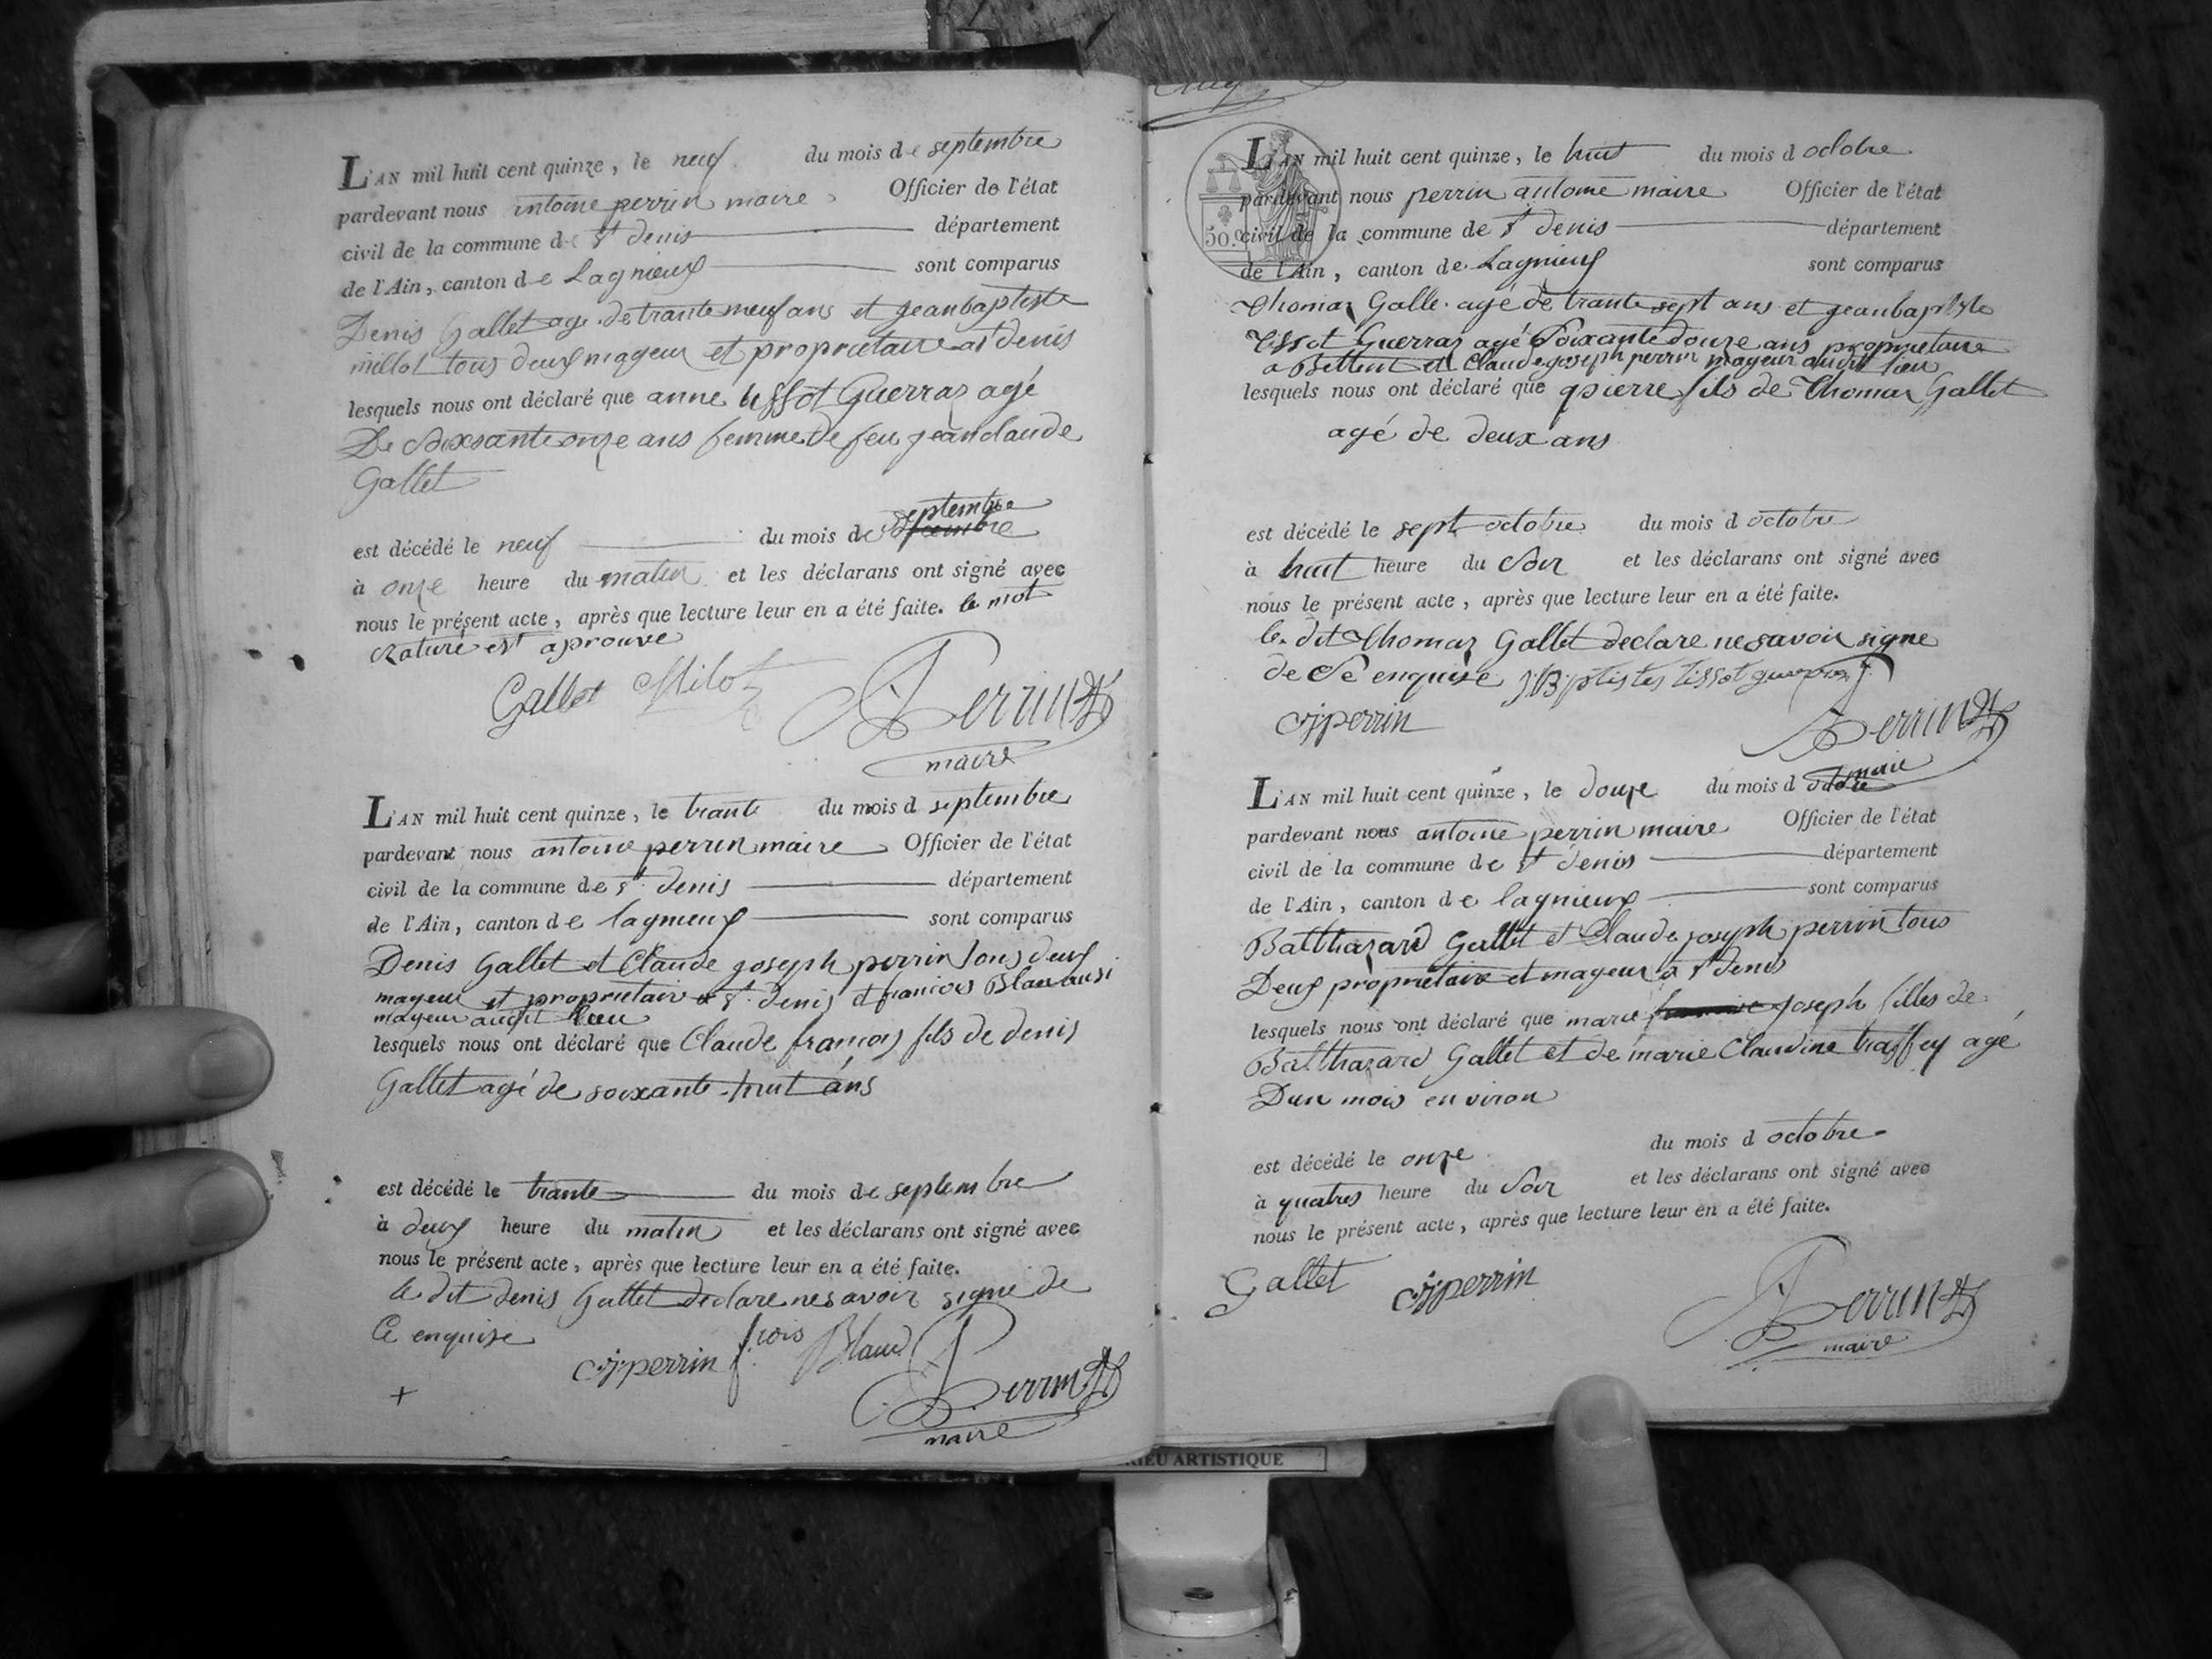 L'AN mil huit cent quinze, le neuf du mois de septembre
pardevant nous antoine perrin maire Officier de l'état
civil de la commune de St denis département
de l'Ain, canton de Lagnieux sont comparus
Denis Gallet age de trante neuf ans et jeanbaptiste
millot tous deux mageur et proprietaire a st denis
lesquels nous ont déclaré que anne tissot Guerraz agé
De Soixsante onze ans femme de feu jean claude
Gallet
est décédé le neuf du mois de septembre
à onze heure du matin et les déclarans ont signé avec
nous le présent acte, après que lecture leur en a été faite. le mot
raturé est aprouve
Gallet Milot Perrin
maire
L'AN mil huit cent quinze, le trante du mois d septembre
pardevant nous antoine perrin maire Officier de l'état
civil de la commune de st denis département
de l'Ain, canton de lagnieux sont comparus
Denis Gallet et Claude joseph perrin tous deux
mageur et proprietaire a st denis et francois Blanc ausi
mageur audit lieu
lesquels nous ont déclaré que Claude françois fils de denis
Gallet agé de soixante huit ans
est décédé le trante du mois de septembre
à deux heure du matin et les déclarans ont signé avec
nous le présent acte, après que lecture leur en a été faite.
le dit denis Gallet declare ne savoir signé de
Ce enquise
cjperrin f.cois Blanc Perrin
maire
+
50 c.
L'AN mil huit cent quinze, le huit du mois d octobre
pardevant nous perrin antoine maire Officier de l'état
civil de la commune de st denis département
de l'Ain, canton de Lagnieux sont comparus
Thomaz Galle agé de trante sept ans et jeanbaptiste
tissot Guerraz agé Soixante douze ans proprietaire
a Bettent et Claude joseph perrin mageur audit lieu
lesquels nous ont déclaré que pierre fils de Thomaz Gallet
agé de deux ans
est décédé le sept octobre du mois d octobre
à huit heure du Soir et les déclarans ont signé avec
nous le présent acte, après que lecture leur en a été faite.
le dit Thomaz Gallet declare ne savoir signe
de Ce enquise J.B.ptistes tissot guerraz
cjperrin Perrin
maire
L'AN mil huit cent quinze, le douze du mois d octobre
pardevant nous antoine perrin maire Officier de l'état
civil de la commune de st denis département
de l'Ain, canton de lagnieux sont comparus
Balthazard Gallet et Claude joseph perrin tous
Deux proprietaire et mageur a st denis
lesquels nous ont déclaré que marie joseph filles de
Balthazard Gallet et de marie Claudine traffey agé
Dun mois en viron
est décédé le onze du mois d octobre
à quatres heure du Soir et les déclarans ont signé avec
nous le présent acte, après que lecture leur en a été faite.
Gallet cjperrin Perrin
maire
RIEU ARTISTIQUE